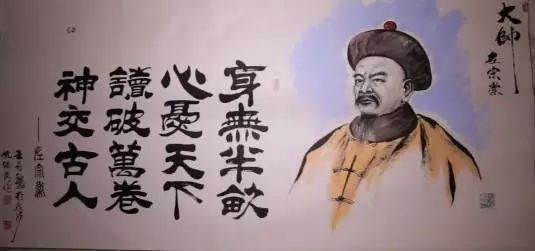 大帥
左宗棠
身無半畝
心憂天下
讀破萬卷
神交古人
——左宗棠